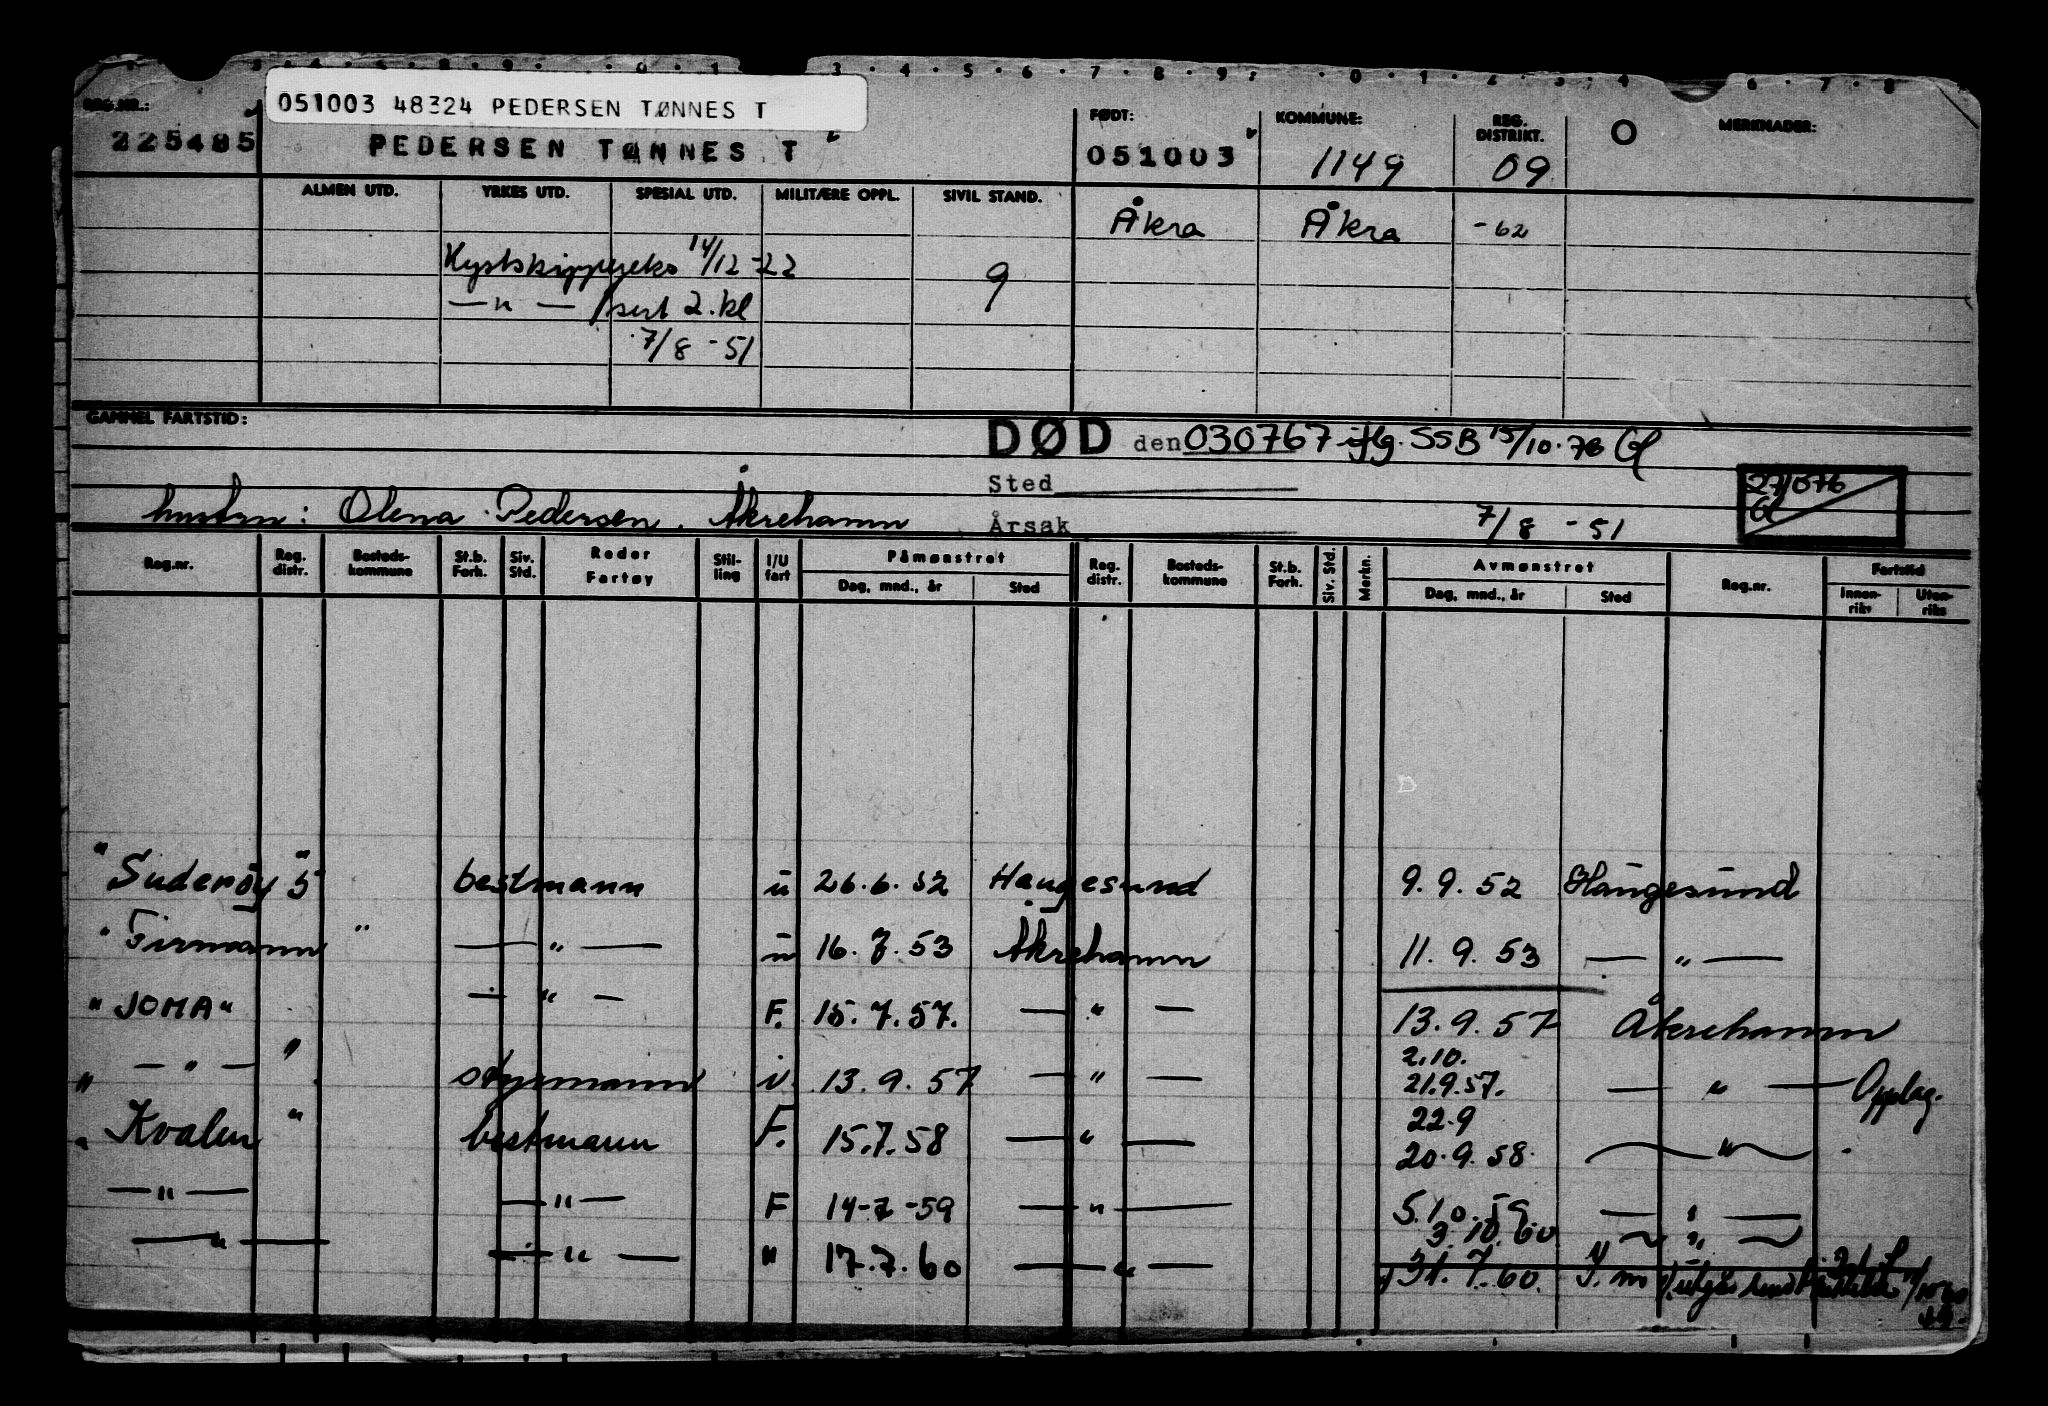 051003 48324 PEDERSEN TØNNES T
REG.NR.: FØDT: KOMMUNE: REG. DISTRIKT. O MERKNADER:
225485 PEDERSEN TØNNES T 051003 1149 09
ALMEN UTD. YRKES UTD. SPESIAL UTD. MILITÆRE OPPL. SIVIL STAND.
Åkra Åkra -62
Kystskippereks 14/12 -22 9
— " — sert 2. kl
7/8 -51
GAMMEL FARTSTID:
DØD den 030767 iflg. SSB 15/10.76 Gl
Sted
27/1076
Gl
hustru: Olena Pedersen. Åkrehamn
Årsak 7/8 -51
Reg.nr. Reg. distr. Bosteds-kommune St.b. Forh. Siv. Std. Reder Fartøy Stilling I/U fart Påmønstret Dag, mnd., år Sted Reg. distr. Bosteds-kommune St.b. Forh. Siv. Std. Merkn. Avmønstret Dag, mnd., år Sted Reg.nr. Fartstid Innen-riks Uten-riks
"Suderøy 5" bestmann u 26.6.52 Haugesund 9.9.52 Haugesund
"Firmann" — " — u 16.7.53 Åkrehamn 11.9.53 — " —
"JOMA" — " — F. 15.7.57. — " — 13.9.57 Åkrehamn
— " — " styrmann i. 13.9.57 — " — 2.10. 21.9.57. — " — Opplag.
"Kvalen" bestmann F. 15.7.58 — " — 22.9 20.9.58. — " —
— " — — " — F 14-7-59 — " — 5.10.59 — " —
— " — — " — " 17.7.60 — " — 3.10.60 — " —
31.7.60.